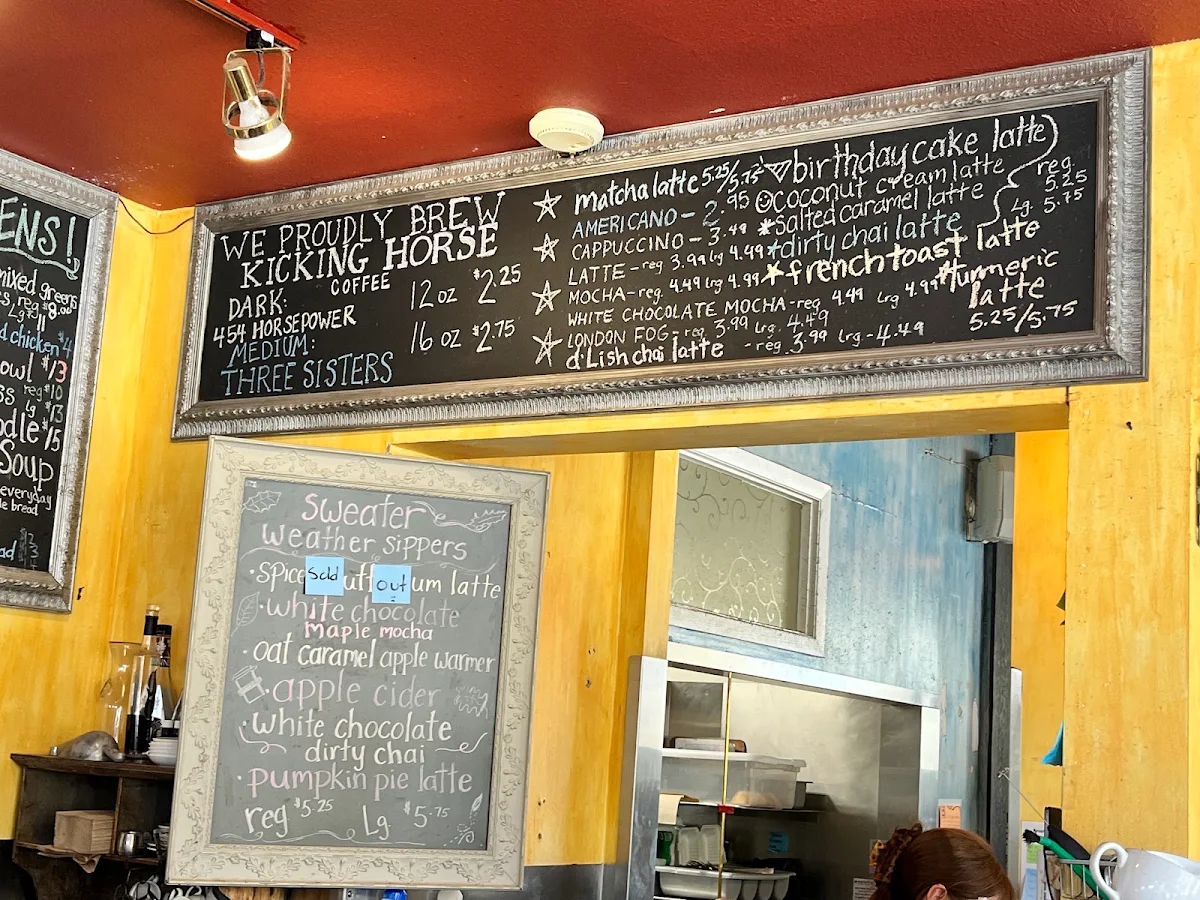 ENS!
mixed greens
reg $8.00
Lg 11
d chicken $4
owl $13
ss reg $10
lg $13
odle 15
Soup
everyday
le bread
ad
WE PROUDLY BREW
KICKING HORSE
COFFEE
DARK:
454 HORSEPOWER
MEDIUM:
THREE SISTERS
12 oz $2.25
16 oz $2.75
matcha latte 5.25/5.75
AMERICANO - 2.95
CAPPUCCINO - 3.49
LATTE - reg 3.99 lg 4.99
MOCHA - reg. 4.49 lrg 4.99
WHITE CHOCOLATE MOCHA - reg 4.49 lrg 4.99
LONDON FOG - reg 3.99 lrg. 4.49
d'Lish chai latte - reg. 3.99 lrg - 4.49
birthday cake latte
coconut cream latte
salted caramel latte
dirty chai latte
reg. 5.25
Lg. 5.75
french toast latte
turmeric
latte
5.25/5.75
sweater
weather sippers
spice sold uff out um latte
white chocolate
maple mocha
oat caramel apple warmer
apple cider
white chocolate
dirty chai
pumpkin pie latte
reg $5.25 Lg $5.75